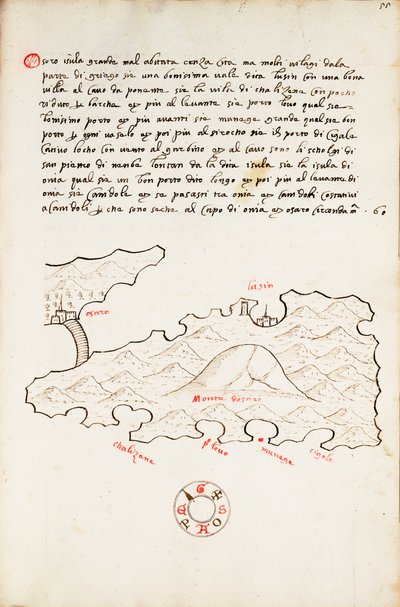 55
Osoro isula grande mal abitata senza cita ma molti vilagi dala
parte di griego sie una bonissima vale dita lusin con una bona
villa al cavo da ponente sie la vile di chalizene con pocho
riduto p barche et piu al levante sie porto lovo qual sie
bonissimo porto et piu avanti sie munege grande qual sie bin
porto p ogni vaselo et poi piu al sirocho sie il porto di cigale
cativo locho con vento al garbino et al cavo sono li scholgi di
san piero di nenbe lontan da la dita isula sie la isula di
onia qual sie un bon porto dito longo et poi piu al levante di
onia sie canidole et se pasasti tra onia et canidoli
a canidoli p che sono seche al capo di onia et osaro circonda m 60
osaro
lusin
Monte dosaro
chalizene
p lovo
munege
cigala
G
S
O
A
P